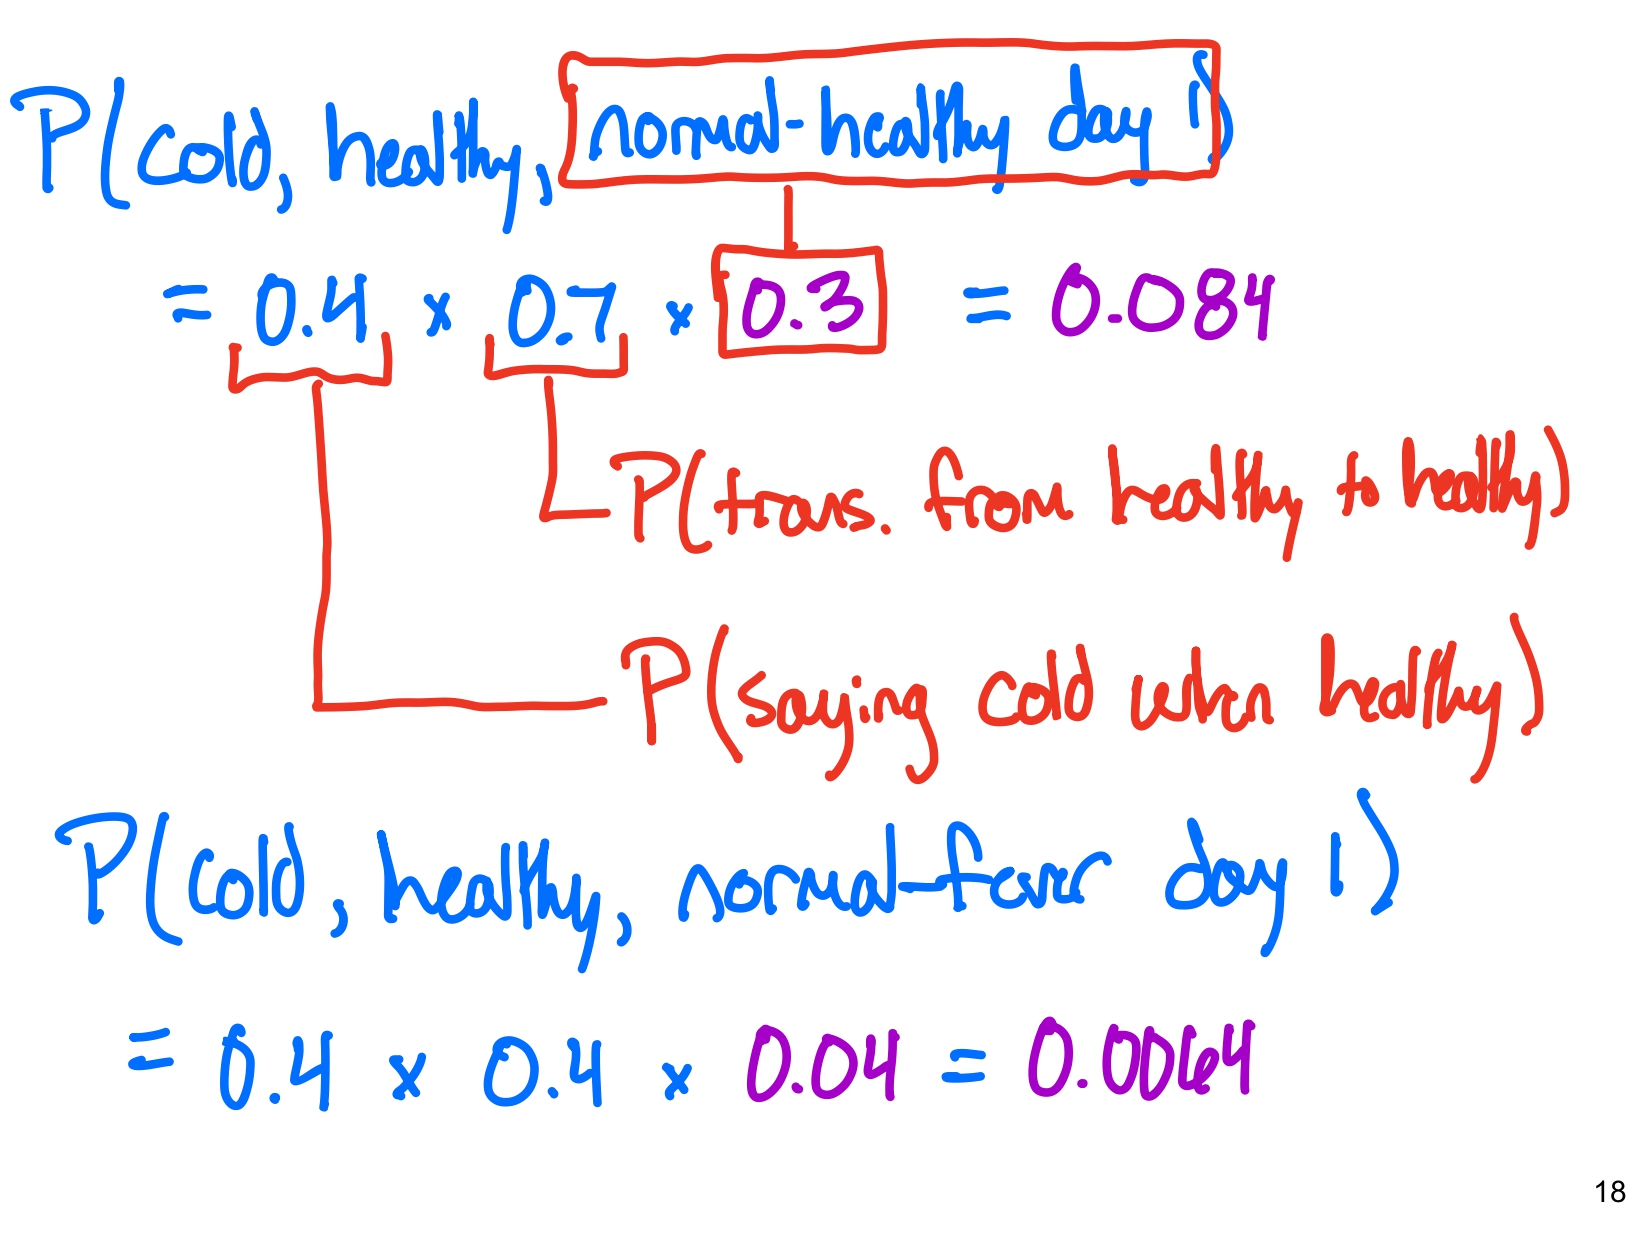 P(cold, healthy, normal-healthy day 1)
= 0.4 × 0.7 × 0.3 = 0.084
P(trans. from healthy to healthy)
P(saying cold when healthy)
P(cold, healthy, normal-fever day 1)
= 0.4 × 0.4 × 0.04 = 0.0064
18